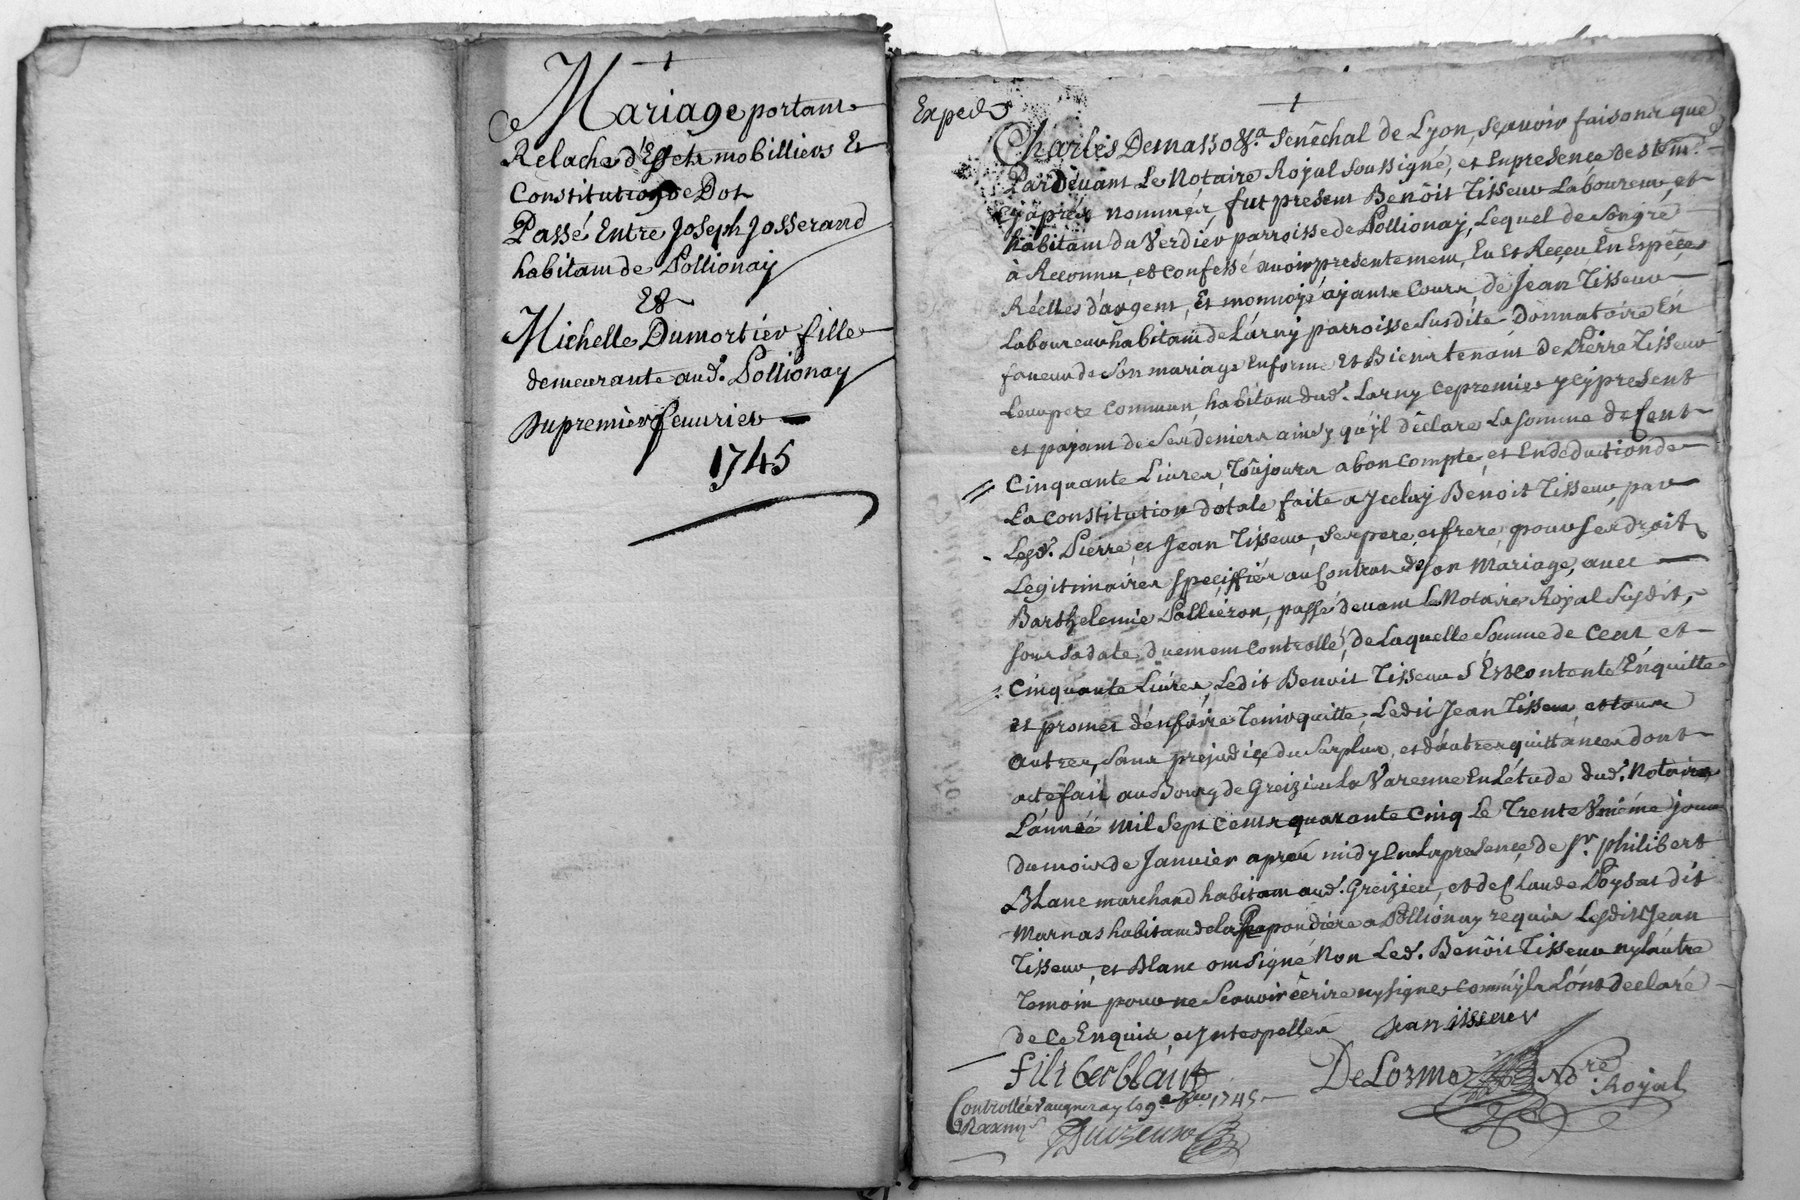 Mariage portant
Relache d'Effets mobilliers Et
Constitution de Dot
Passé Entre Joseph Josserand
habitant de Pollionay
Et
Michelle Dumortier fille
demeurante aud. Pollionay
Du premier feuvrier
1745
Exped
Charles Demasso &a. Senêchal de Lyon, sçavoir faisons que
Pardevant Le Notaire Royal soussigné, et En presence des tem.
cy après nommés, fut present Benôit Tisseur Laboureur, et
habitant du Verdier parroisse de Pollionay, Lequel de son gré
à Reconnu, et confessé avoir presentement, Eu Et Reçeu En Espêces
Réelles d'argent, Et monnoye ayante Cours de Jean Tisseur
Laboureur habitant de Larny parroisse Susdite Donnatoire En
faveur de Son mariage Enforme Et Bienstenant de Pierre Tisseur
Leur pere commun, habitant dud. Larny ce premier ycy present
et payant de Ses deniers ainsy qu'jl déclare La Somme de Cent
Cinquante Livres, Toûjours a bon compte, et En déduction de
La constitution dotale faite a yceluy Benoit Tisseur, par
Lesd. Pierre et Jean Tisseur, Ses pere, et frere, pour Ses droits
Legitimaires spéciffiés au Contrat de Son Mariage, avec
Barthelemie Pollieron, passé devant Le Notaire Royal Susdit,
sous Sa date duement Controllé, de Laquelle Somme de Cent et
Cinquante Livres, Ledit Benoit Tisseur S'Est contenté En quitte
et promet d'en faire Tenir quitte, Ledit Jean Tisseur et tous
autres, Sans préjudice du Surplus, et d'autres quittances dont
acte fait au Bourg de Greizieu La Varenne En L'étude dud. Notaire
L'année mil Sept Cents quarante Cinq Le Trente Vnième jour
du mois de Janvier après midy En La presence de Sr. philibert
Blanc marchand habitant aud. Greizieu, et de Claude Poysat dit
Marnas habitant de la Papoudiere a Pollionay requis Lesdits Jean
Tisseur, et Blanc ont Signé Non Led. Benôit Tisseur ny L'autre
Temoin pour ne Scavoir écrire ny signer comm'jls L'ont declaré
de Ce Enquis, et Interpellés Jean tisseur
filiber blanc
DeLorme Nore. Royal
Controllé a Vaugneray le 9e feu. 1745